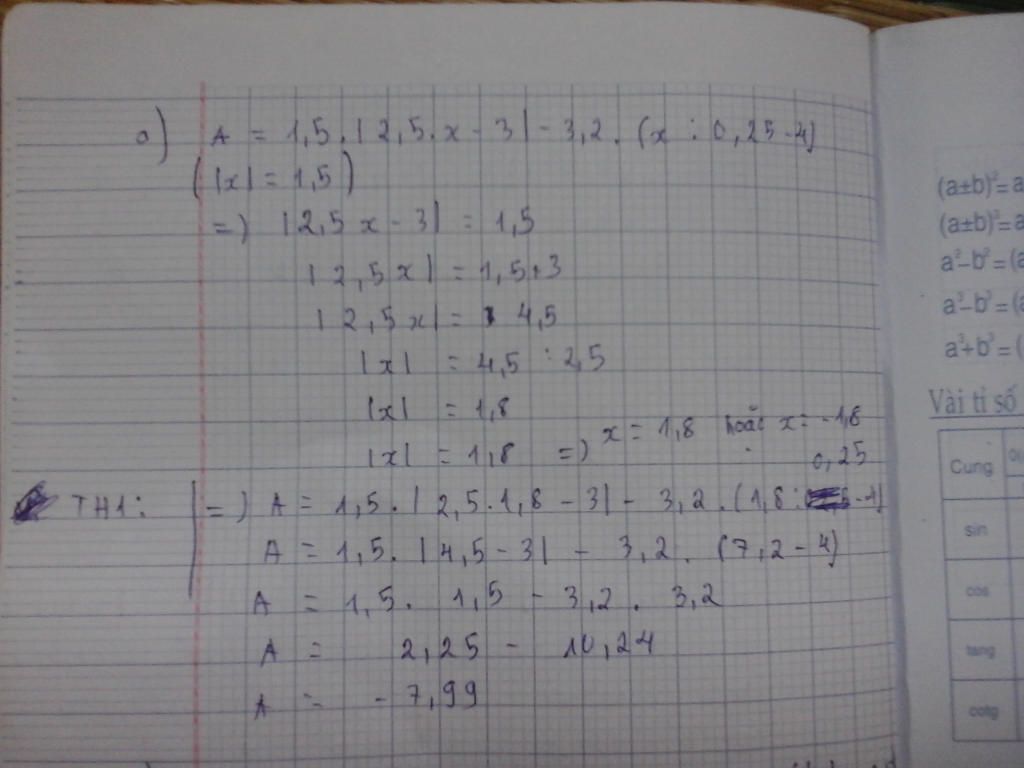 a) A = 1,5.|2,5.x - 3| - 3,2.(x : 0,25-4)
(|x| = 1,5)
=) |2,5x - 3| = 1,5
|2,5x| = 1,5+3
|2,5x| = 4,5
|x| = 4,5 : 2,5
|x| = 1,8
|x| = 1,8 =) x = 1,8 hoặc x = -1,8
0,25
TH1: =) A = 1,5.|2,5.1,8 - 3| - 3,2.(1,8 : -4)
A = 1,5.|4,5-3| - 3,2.(7,2-4)
A = 1,5. 1,5 - 3,2. 3,2
A = 2,25 - 10,24
A = -7,99
(a±b)²= a
(a±b)³= a
a²-b²=(a
a³-b³=(a
a³+b³=(
Vài tỉ số
Cung
sin
cos
tang
cotg